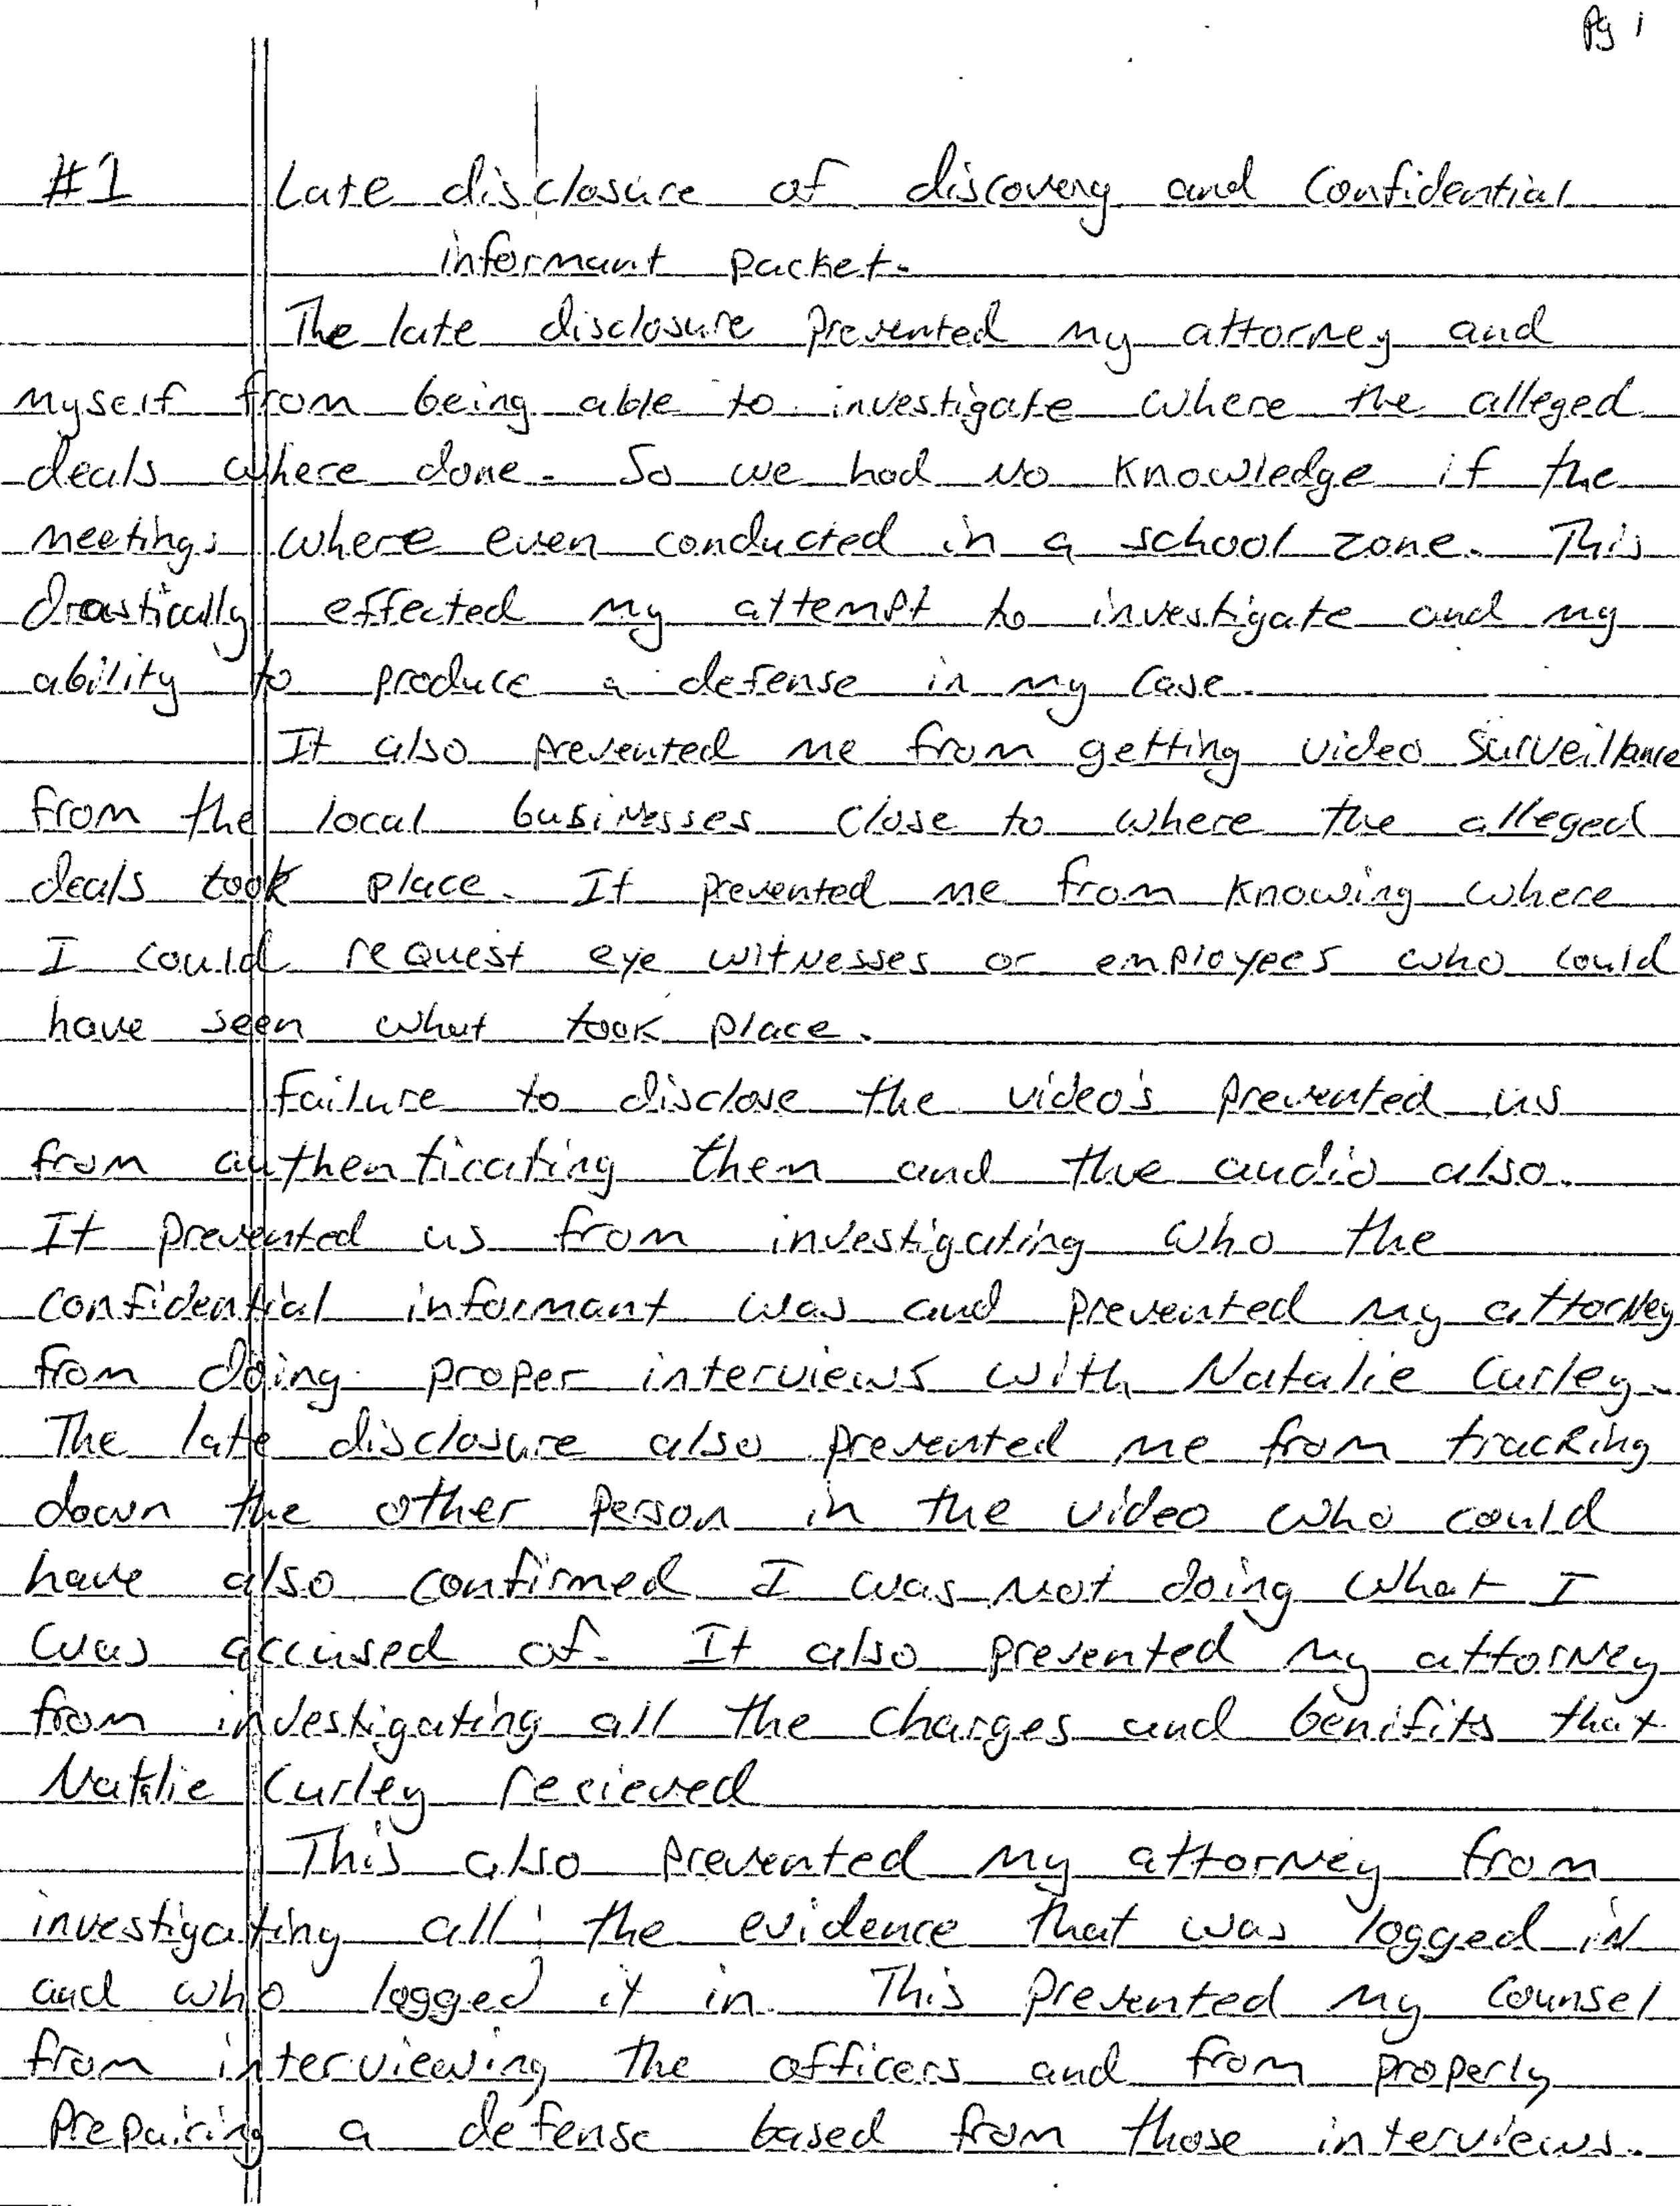 Pg 1
#1 Late disclosure of discovery and Confidential
informant packet.
The late disclosure prevented my attorney and
myself from being able to investigate where the alleged
deals where done. So we had no knowledge if the
meetings where even conducted in a school zone. This
drastically effected my attempt to investigate and my
ability to produce a defense in my case.
It also prevented me from getting video surveillance
from the local businesses close to where the alleged
deals took place. It prevented me from knowing where
I could request eye witnesses or employees who could
have seen what took place.
Failure to disclose the video's prevented us
from authenticating them and the audio also.
It prevented us from investigating who the
confidential informant was and prevented my attorney
from doing proper interviews with Natalie Curley.
The late disclosure also prevented me from tracking
down the other person in the video who could
have also confirmed I was not doing what I
was accused of. It also prevented my attorney
from investigating all the charges and benifits that
Natalie Curley recieved
This also prevented my attorney from
investigating all the evidence that was logged in
and who logged it in. This prevented my counsel
from interviewing the officers and from properly
prepairing a defense based from those interviews.